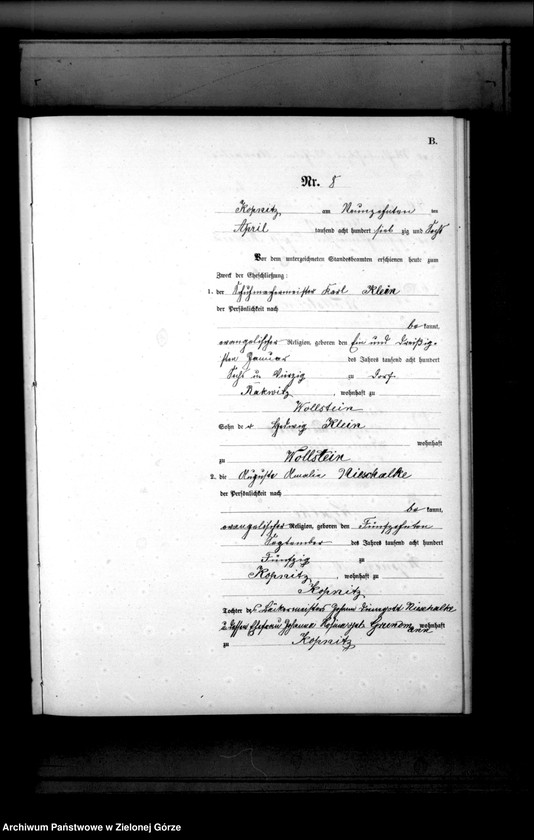 B.
Nr. 8
Kopnitz am Neunzehnten ten
April tausend acht hundert sieb zig und Sechs
Vor dem unterzeichneten Standesbeamten erschienen heute zum
Zweck der Eheschließung:
1. der Schuhmachermeister Karl Klein
der Persönlichkeit nach
be kannt,
evangelischer Religion, geboren den Ein und Dreißig-
sten Januar des Jahres tausend acht hundert
Sechs u Vierzig zu Dorf
Rakwitz, wohnhaft zu
Wollstein
Sohn de r Hedwig Klein
wohnhaft
zu Wollstein
2. die Auguste Amalie Nieschalke
der Persönlichkeit nach
be kannt,
evangelischer Religion, geboren den Fünfzehnten
September des Jahres tausend acht hundert
Fünfzig zu
Kopnitz wohnhaft zu
Kopnitz
Tochter des Bäckermeisters Johann Nieschalke
u dessen Ehefrau Johanna wohnhaft
zu Kopnitz
Archiwum Państwowe w Zielonej Górze